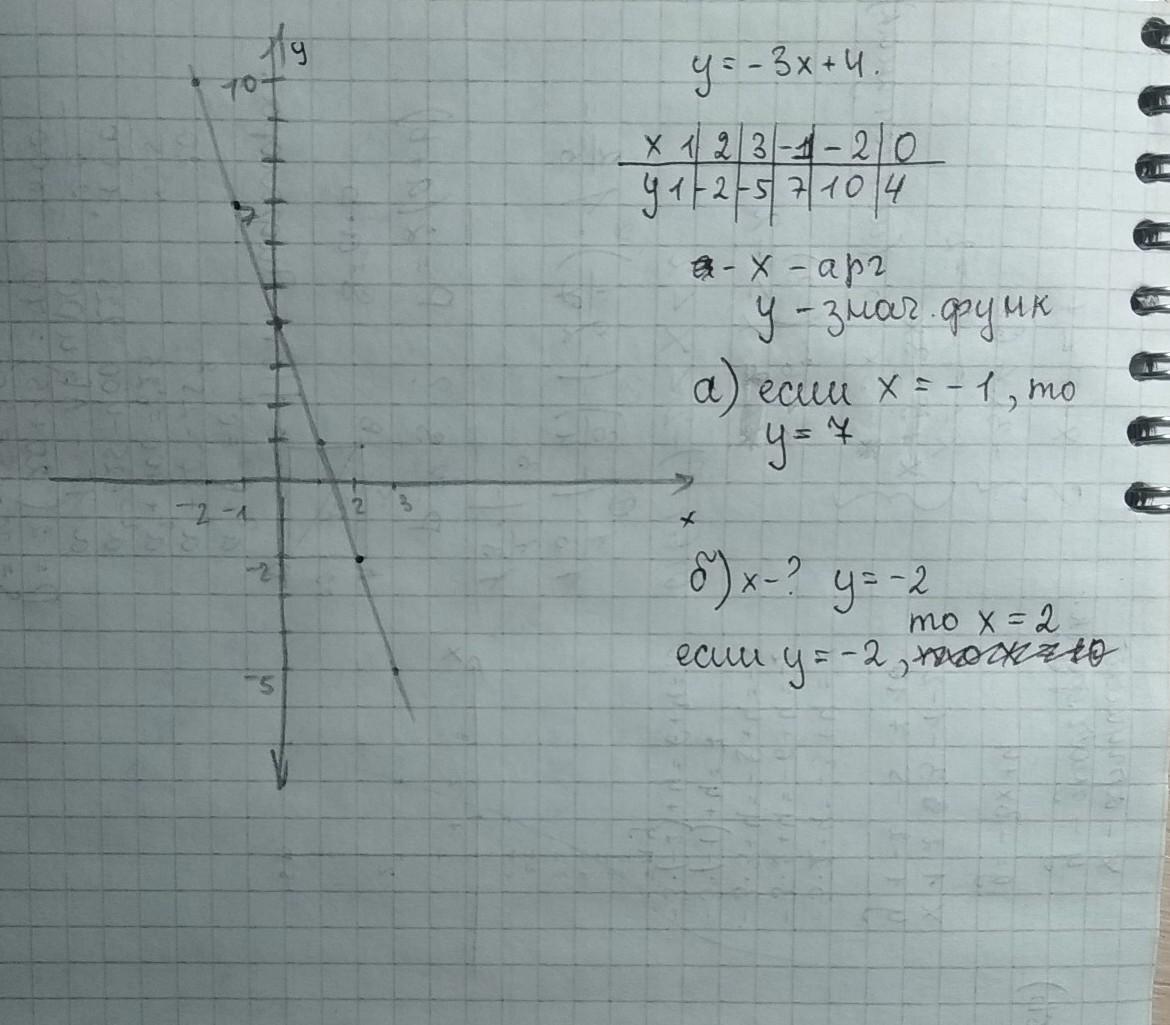 y
10
7
-2 -1 2 3
x
-2
-5
y = -3x + 4.
x 1 2 3 -1 -2 0
y 1 -2 -5 7 10 4
- x - арг
y - знач. функ
а) если x = -1, то
y = 7
б) x - ? y = -2
то x = 2
если y = -2,